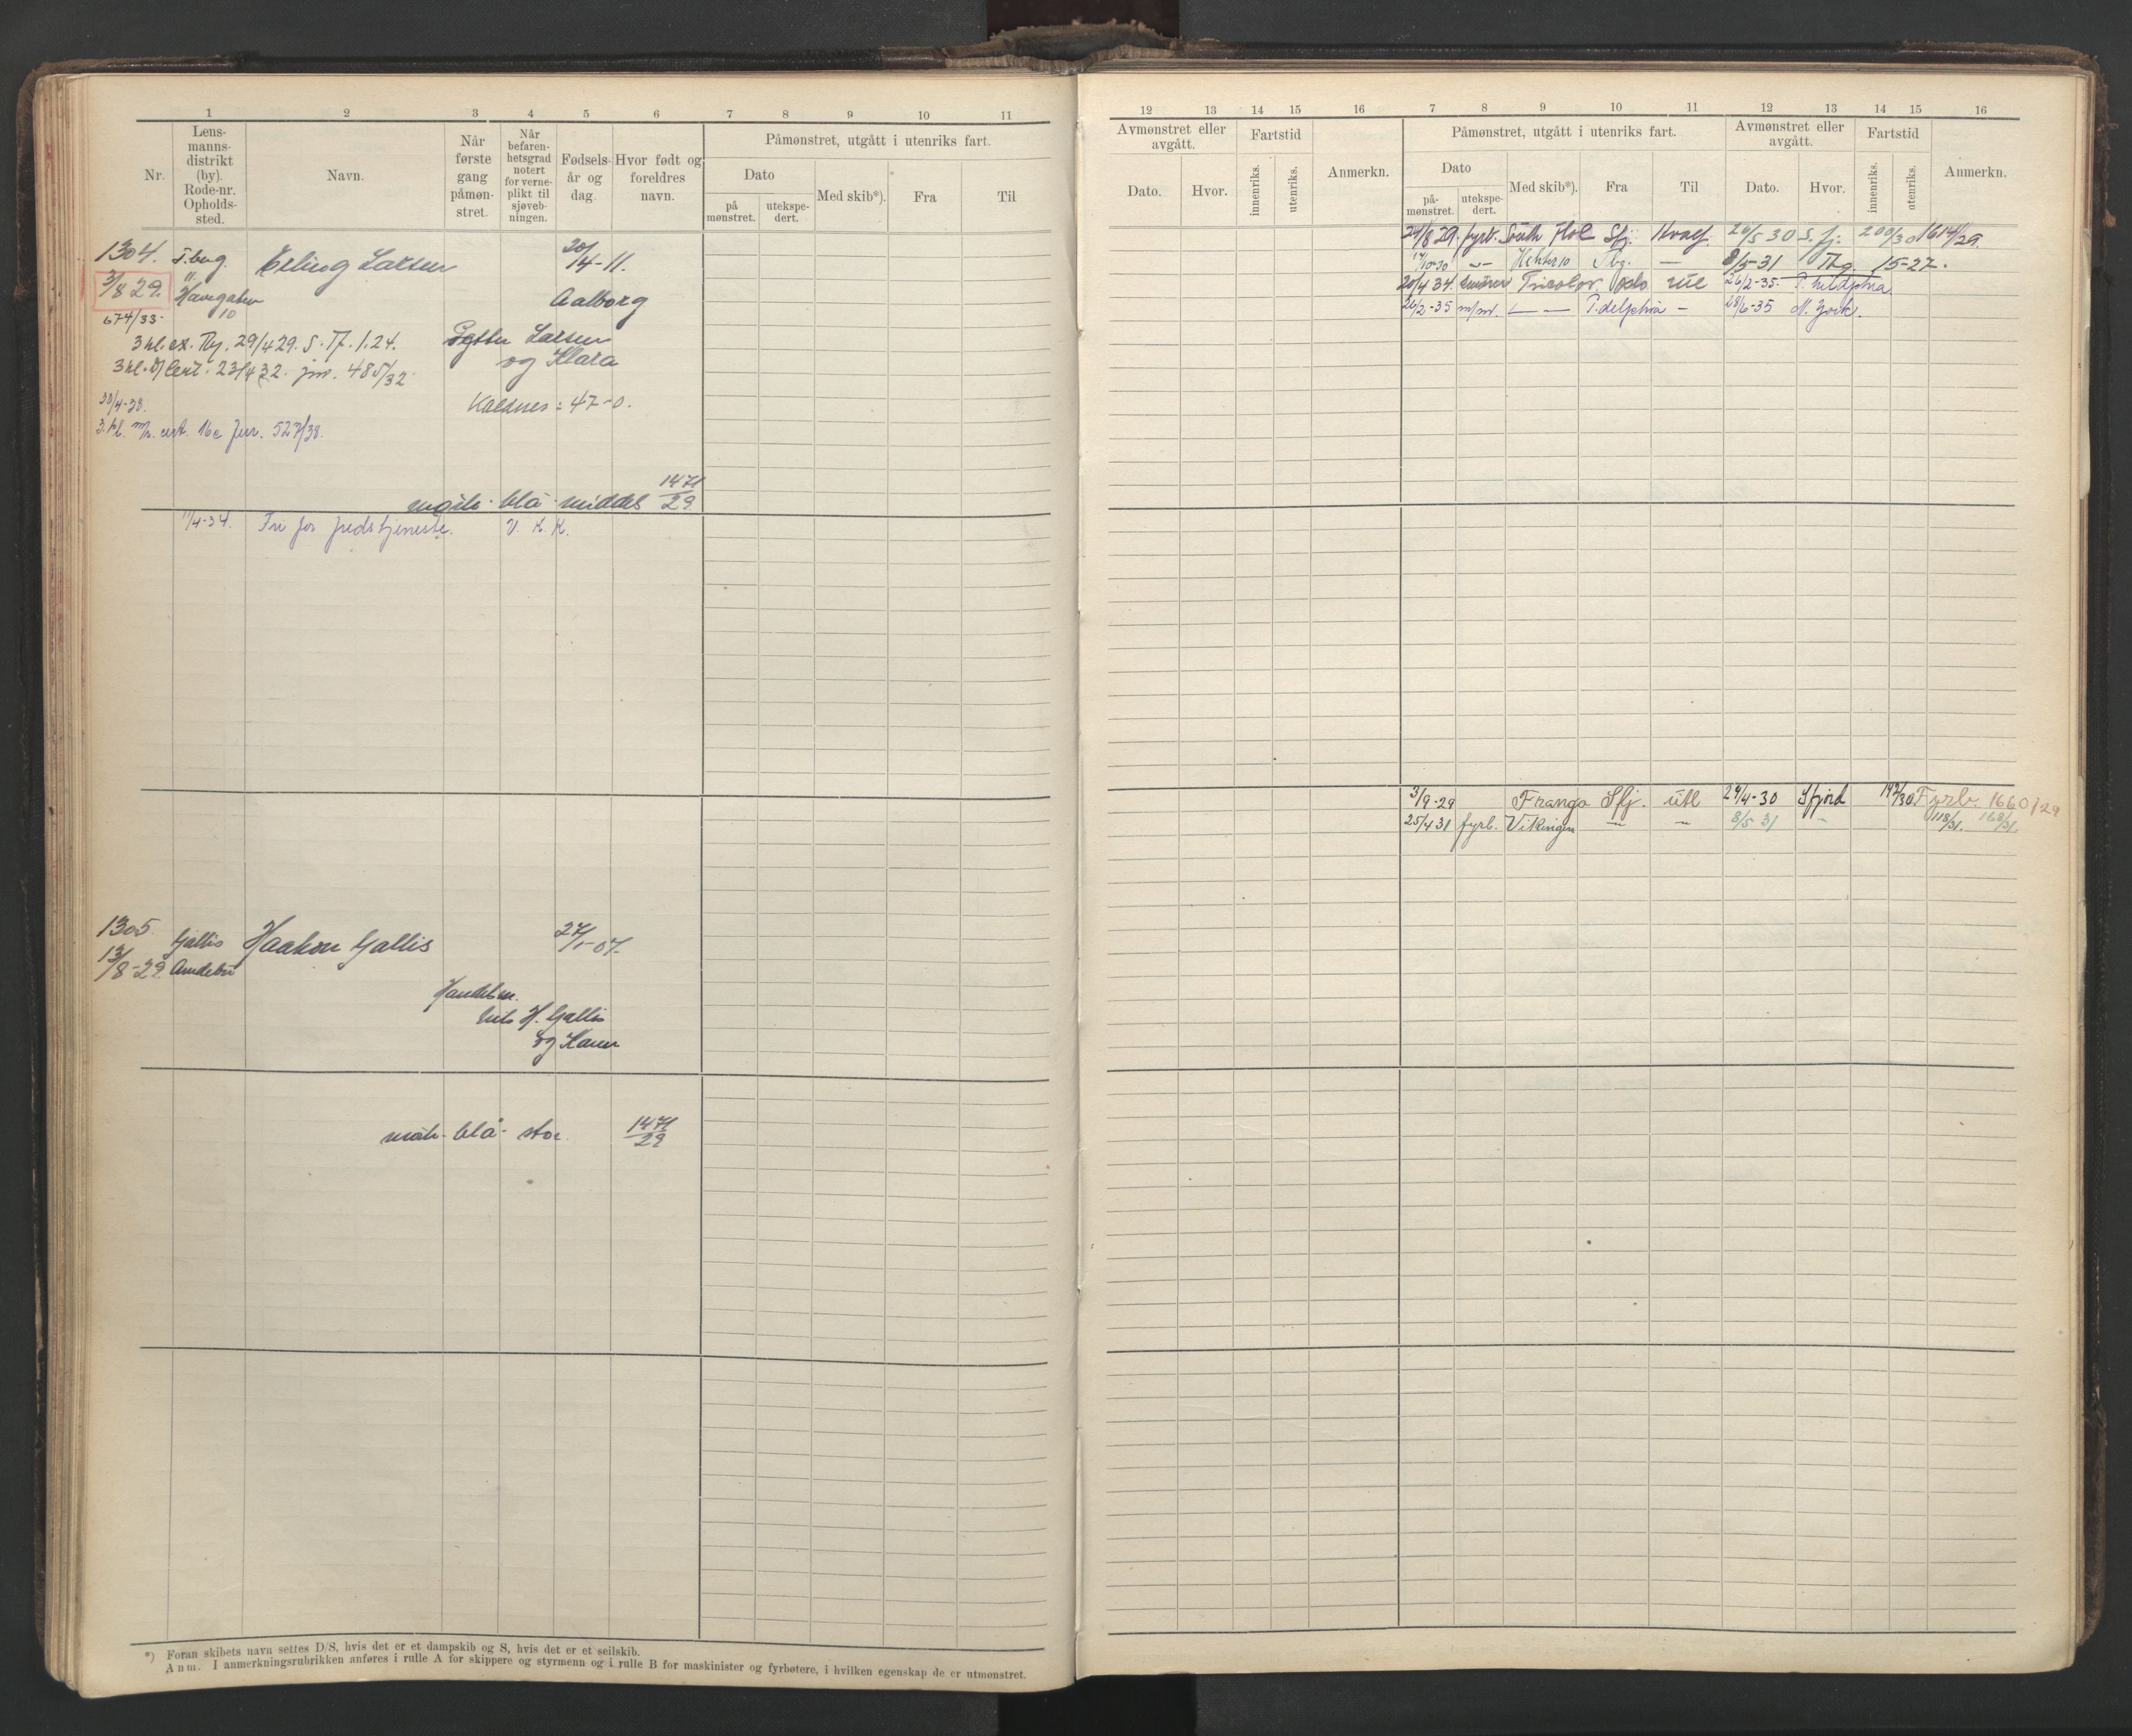 1 2 3 4 5 6 7 8 9 10 11
Nr.
Lens-
manns-
distrikt
(by).
Rode-nr.
Opholds-
sted.
Navn.
Når
første
gang
påmøn-
stret.
Når
befaren-
hetsgrad
notert
for verne-
plikt til
sjøveb-
ningen.
Fødsels-
år og
dag.
Hvor født og
foreldres
navn.
Påmønstret, utgått i utenriks fart.
Dato
på
mønstret.
utekspe-
dert.
Med skib*).
Fra
Til
1304. T.berg. Erling Larsen 20/4-11.
3/8 29. Havegaten Aalborg
10
674/33
3 kl. ex. 29/4 29. 1.24. Larsen
3 kl. 23/4 32. jnr. 485/32 og Klara
30/4-38. Kaldnes: 47-0.
3. kl. cert. Jnr. 527/38.
blå middels 1471/29
11/4-34. Fri for fredstjeneste. V. K. K.
1305 Gallis Haakon Gallis 27/1-07.
13/8-29. Andebu
Handelsm.
H. Gallis
og Karen
blå - stor. 1471/29
*) Foran skibets navn settes D/S, hvis det er et dampskib og S, hvis det er et seilskib.
Anm. I anmerkningsrubrikken anføres i rulle A for skippere og styrmenn og i rulle B for maskinister og fyrbøtere, i hvilken egenskap de er utmønstret.
12 13 14 15 16 7 8 9 10 11 12 13 14 15 16
Avmønstret eller
avgått.
Dato.
Hvor.
Fartstid
innenriks.
utenriks.
Anmerkn.
Påmønstret, utgått i utenriks fart.
Dato
på-
mønstret.
utekspe-
dert.
Med skib*).
Fra
Til
Avmønstret eller
avgått.
Dato.
Hvor.
Fartstid
innenriks.
utenriks.
Anmerkn.
24/8 29. fyrb. South Sfj. Hvalf. 20/5 30 S.fj. 200/30 1614/29.
17/10-30 — Tbg. — 8/5-31 Tbg. 15-27.
20/4 34. Tricolor Oslo utl 26/2-35.
26/2-35 — — P.delphia — 28/6-35 N. York.
3/9-29 Frango Sfj. utl 29/4-30 Sfjord 192/30 Fyrb. 1660/29
25/4 31 fyrb. Vikingen — — 8/5 31 — 118/31. 168/31.